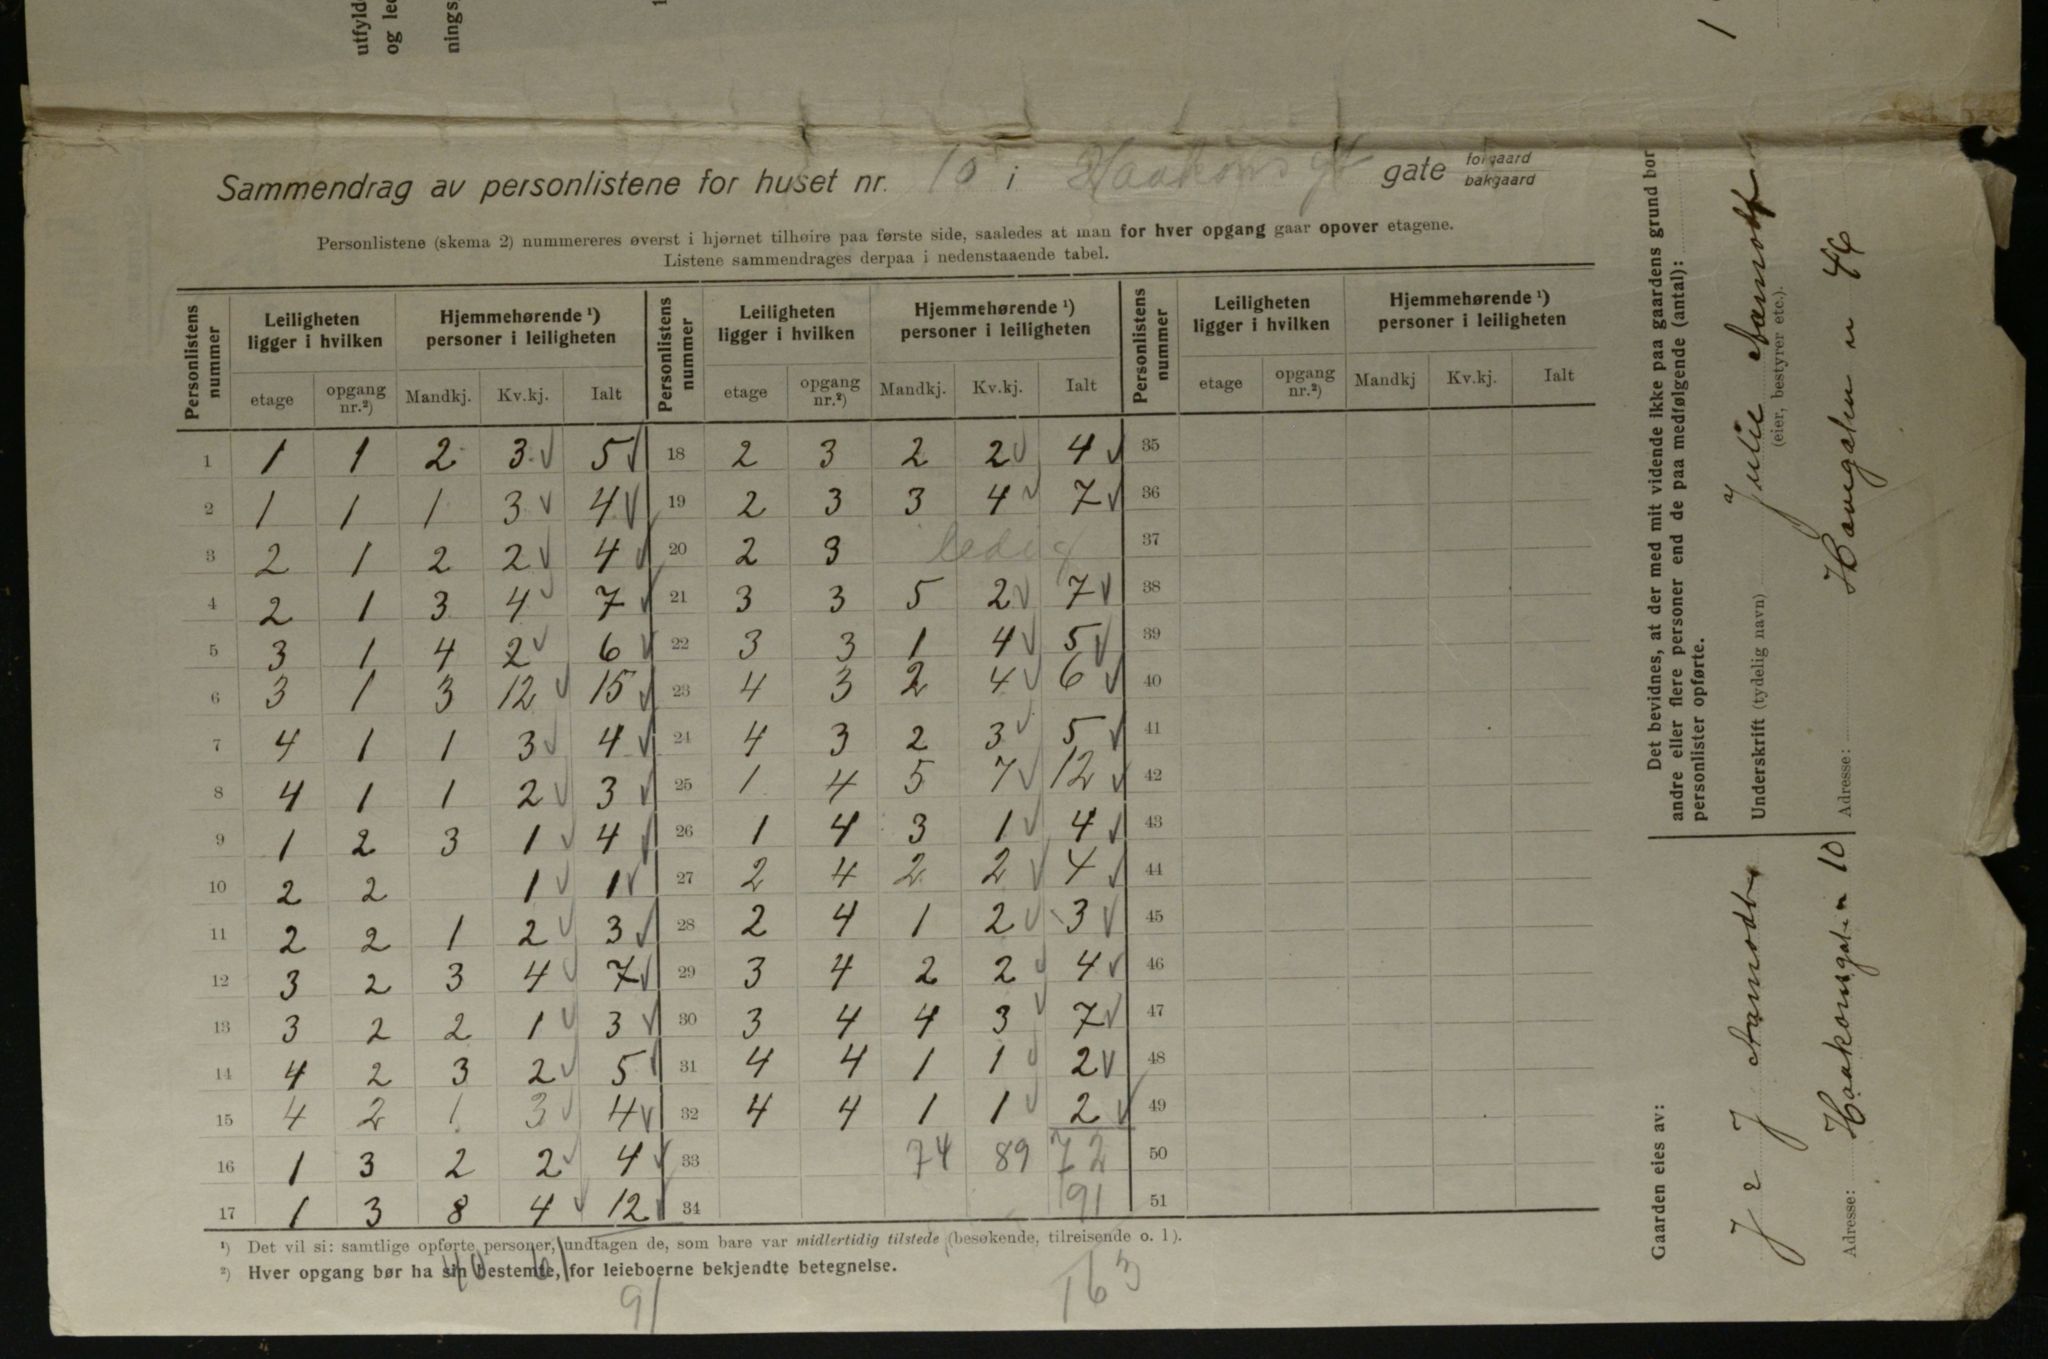 utfylde
og lee
nings
Sammendrag av personlistene for huset nr. 10 i Haakons gt gate forgaard bakgaard
Personlistene (skema 2) nummereres øverst i hjørnet tilhøire paa første side, saaledes at man for hver opgang gaar opover etagene.
Listene sammendrages derpaa i nedenstaaende tabel.
Personlistens nummer | Leiligheten ligger i hvilken | Hjemmehørende ¹) personer i leiligheten | Personlistens nummer | Leiligheten ligger i hvilken | Hjemmehørende ¹) personer i leiligheten | Personlistens nummer | Leiligheten ligger i hvilken | Hjemmehørende ¹) personer i leiligheten
etage | opgang nr.²) | Mandkj. | Kv.kj. | Ialt | etage | opgang nr.²) | Mandkj. | Kv.kj. | Ialt | etage | opgang nr.²) | Mandkj | Kv.kj. | Ialt
1 | 1 | 1 | 2 | 3 | 5 | 18 | 2 | 3 | 2 | 2 | 4 | 35
2 | 1 | 1 | 1 | 3 | 4 | 19 | 2 | 3 | 3 | 4 | 7 | 36
3 | 2 | 1 | 2 | 2 | 4 | 20 | 2 | 3 | ledig | 37
4 | 2 | 1 | 3 | 4 | 7 | 21 | 3 | 3 | 5 | 2 | 7 | 38
5 | 3 | 1 | 4 | 2 | 6 | 22 | 3 | 3 | 1 | 4 | 5 | 39
6 | 3 | 1 | 3 | 12 | 15 | 23 | 4 | 3 | 2 | 4 | 6 | 40
7 | 4 | 1 | 1 | 3 | 4 | 24 | 4 | 3 | 2 | 3 | 5 | 41
8 | 4 | 1 | 1 | 2 | 3 | 25 | 1 | 4 | 5 | 7 | 12 | 42
9 | 1 | 2 | 3 | 1 | 4 | 26 | 1 | 4 | 3 | 1 | 4 | 43
10 | 2 | 2 | | 1 | 1 | 27 | 2 | 4 | 2 | 2 | 4 | 44
11 | 2 | 2 | 1 | 2 | 3 | 28 | 2 | 4 | 1 | 2 | 3 | 45
12 | 3 | 2 | 3 | 4 | 7 | 29 | 3 | 4 | 2 | 2 | 4 | 46
13 | 3 | 2 | 2 | 1 | 3 | 30 | 3 | 4 | 4 | 3 | 7 | 47
14 | 4 | 2 | 3 | 2 | 5 | 31 | 4 | 4 | 1 | 1 | 2 | 48
15 | 4 | 2 | 1 | 3 | 4 | 32 | 4 | 4 | 1 | 1 | 2 | 49
16 | 1 | 3 | 2 | 2 | 4 | 33 | | | 74 | 89 | 72 | 50
17 | 1 | 3 | 8 | 4 | 12 | 34 | | | | | 91 | 51
¹) Det vil si: samtlige opførte personer, undtagen de, som bare var midlertidig tilstede (besøkende, tilreisende o. l).
²) Hver opgang bør ha sin bestemte, for leieboerne bekjendte betegnelse.
91
163
Det bevidnes, at der med mit vidende ikke paa gaardens grund bor
andre eller flere personer end de paa medfølgende (antal):
personlister opførte.
Underskrift (tydelig navn) Julie
(eier, bestyrer etc.).
Adresse: 46
Gaarden eies av:
J J
Adresse: Haakonsgaten 10